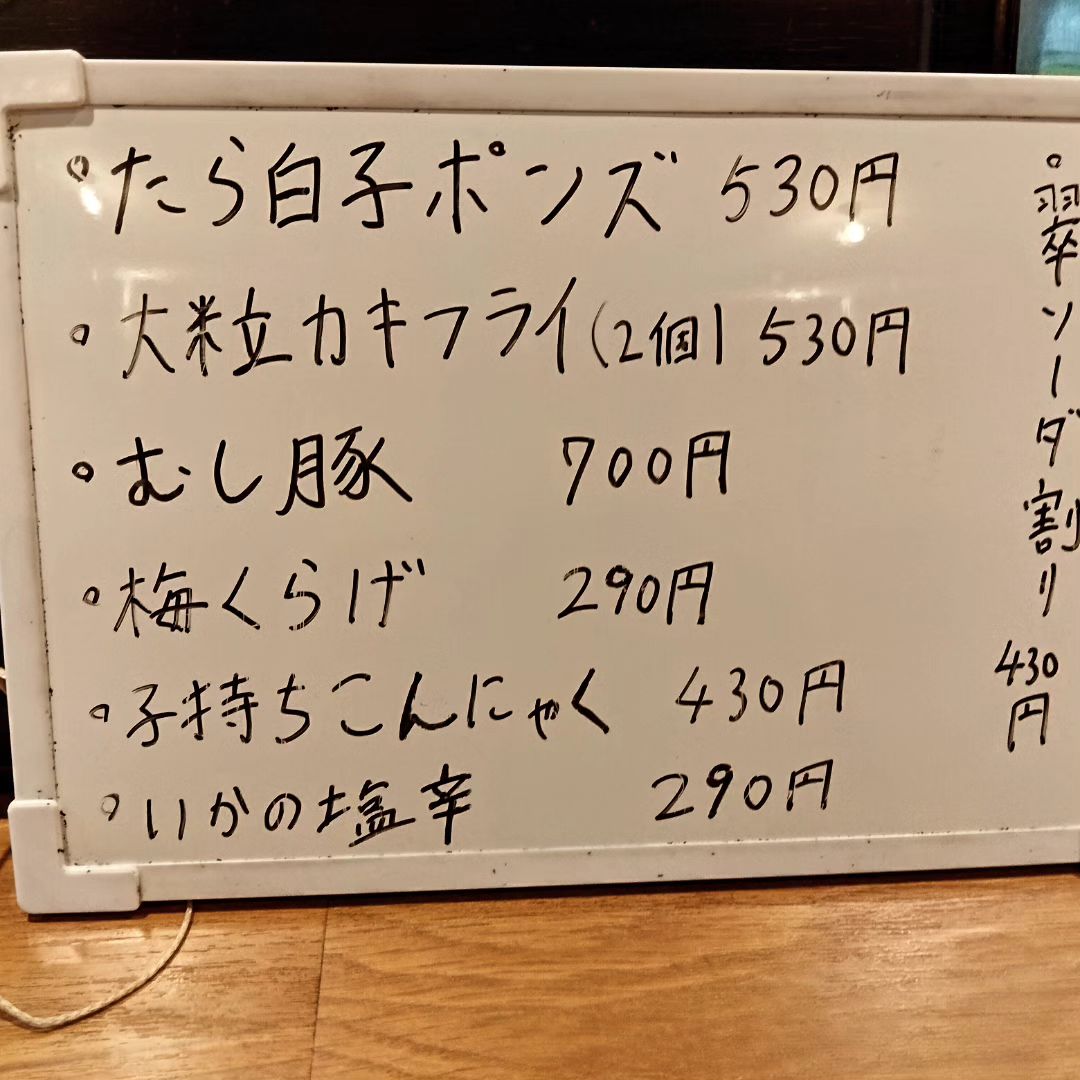 。たら白子ポンズ 530円
。大粒カキフライ(2個) 530円
。むし豚 700円
。梅くらげ 290円
。子持ちこんにゃく 430円
。いかの塩辛 290円
。翠ソーダ割り 430円